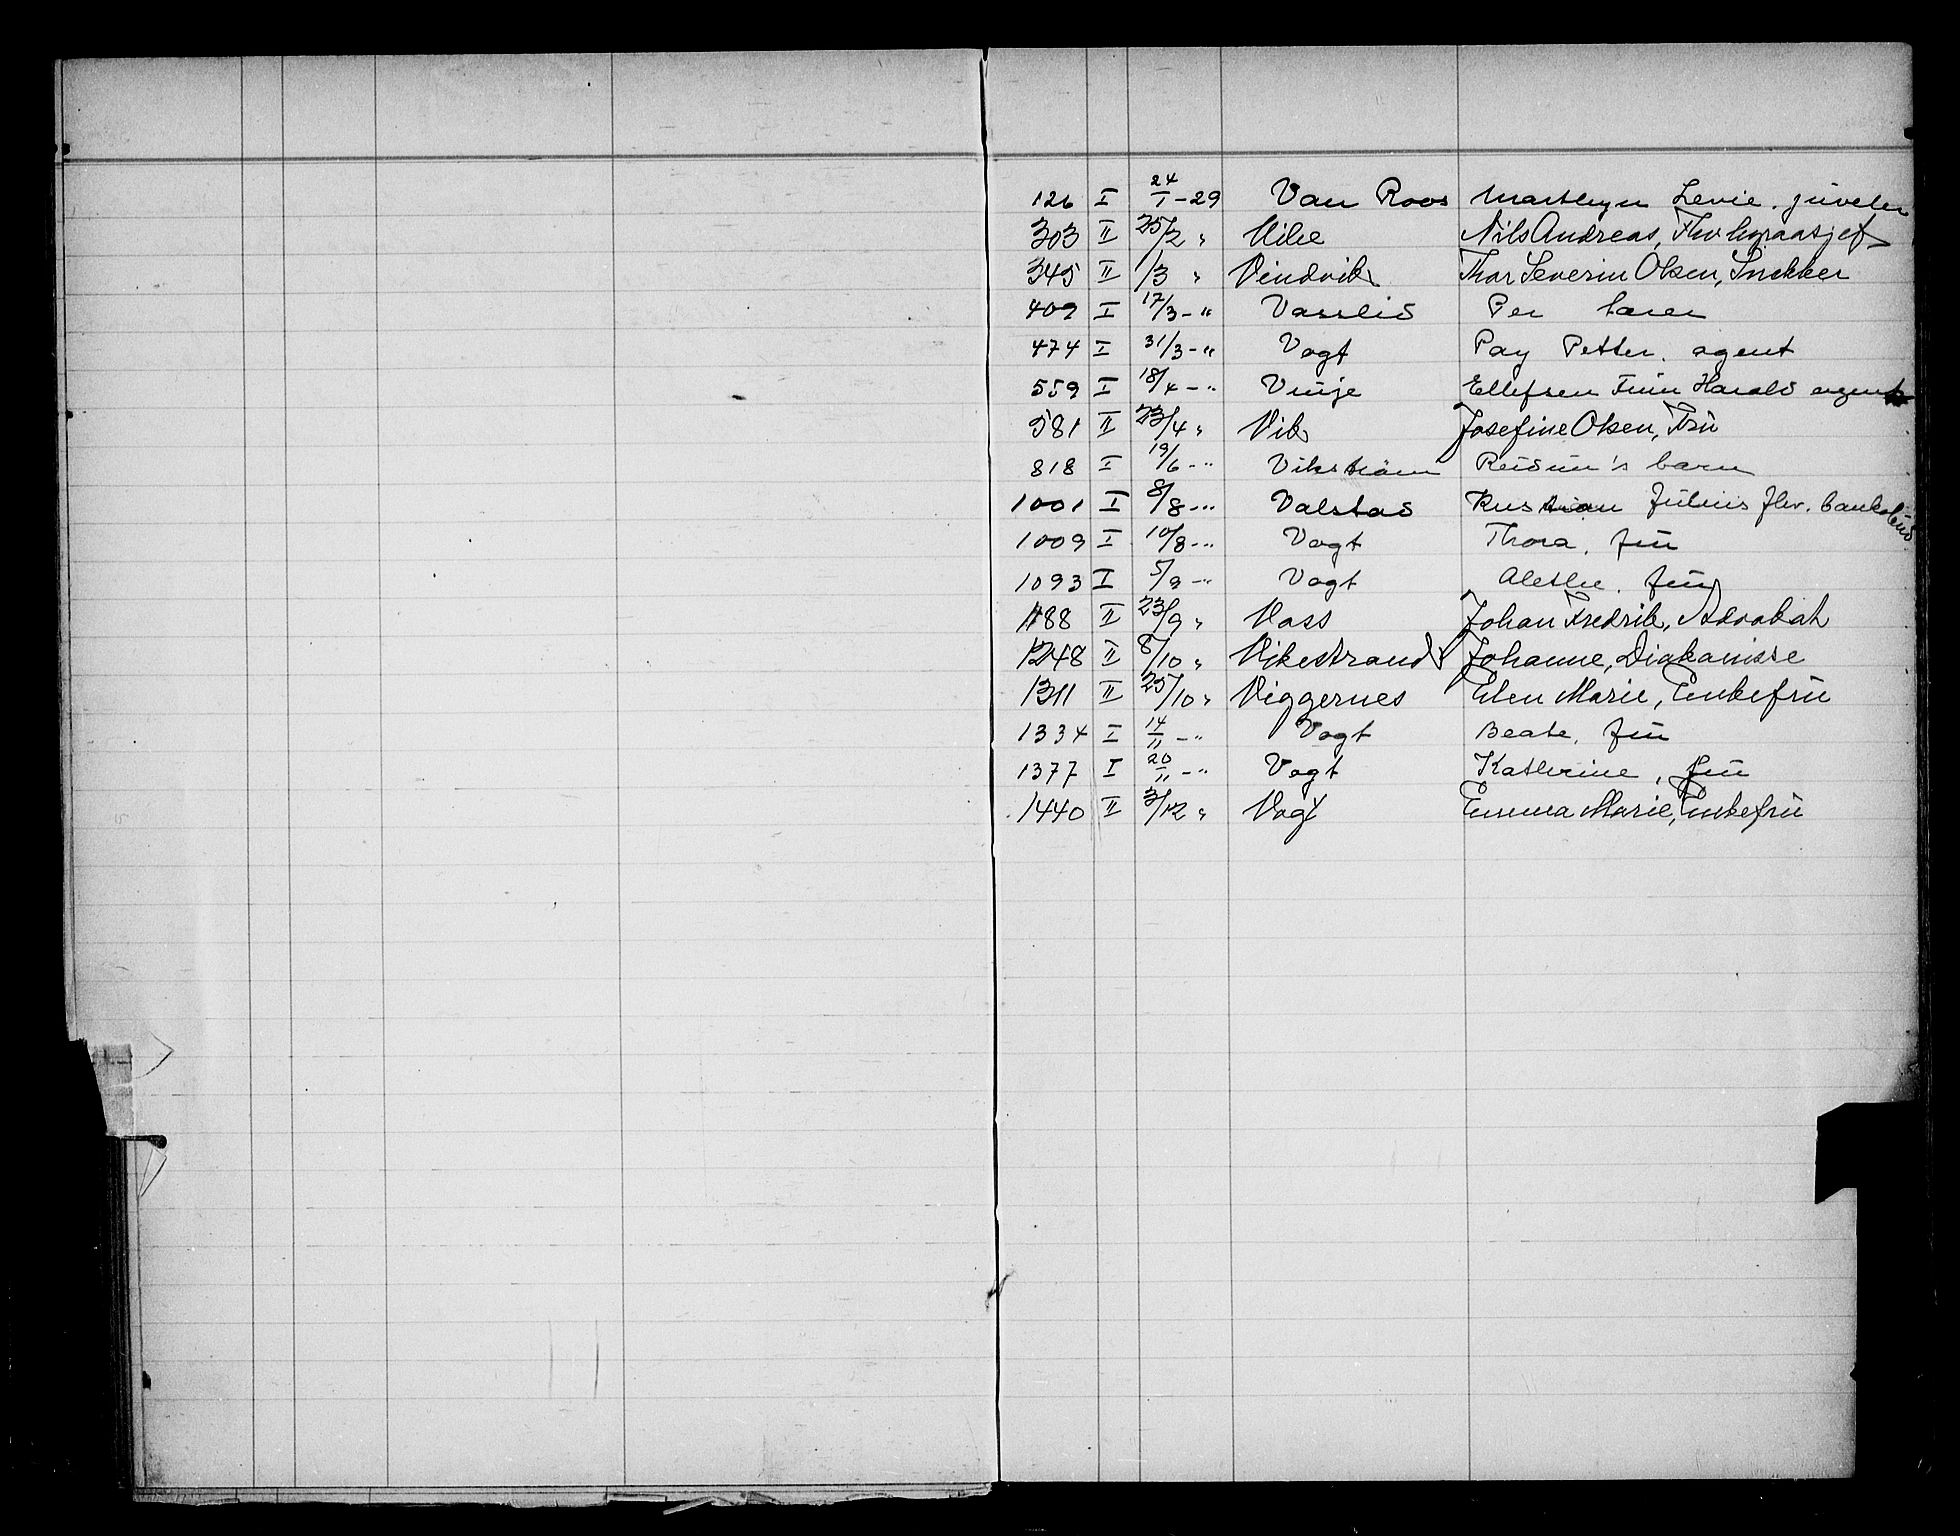 126 I 24/1-29 Van Roos Marthyn Levie. juveler
303 II 25/2 " Vibe Nils Andreas, Fhv
345 II /3 " Vindvik Thor Severin Olsen, Snekker
409 I 17/3-" Vasslid Per lærer
474 I 31/3-" Vogt Pay Petter. agent
559 I 18/4-" Vinje Ellefsen Finn Harald agent
581 II 23/4 " Vik Josefine Olsen, Frü
818 I 19/6-" Vikstrøm Reidün's barn
1001 I 8/8-" Valstad Kristian Jülius fhv. bankobüd
1009 I 10/8-" Vogt Thora. frü
1093 I 5/9-" Vogt Alethe. frü
1188 II 23/9 " Voss Johan Fredrik, Advokat
1248 II 8/10 " Vikestrand Johanne, Diakonisse
1311 II 25/10 " Viggernes Elen Marie, Enkefrü
1334 I 14/11-" Vogt Beate. frü
1377 I 20/11-" Vogt Kathrine, frü
1440 II 3/12 " Vogt Emma Marie, Enkefrü